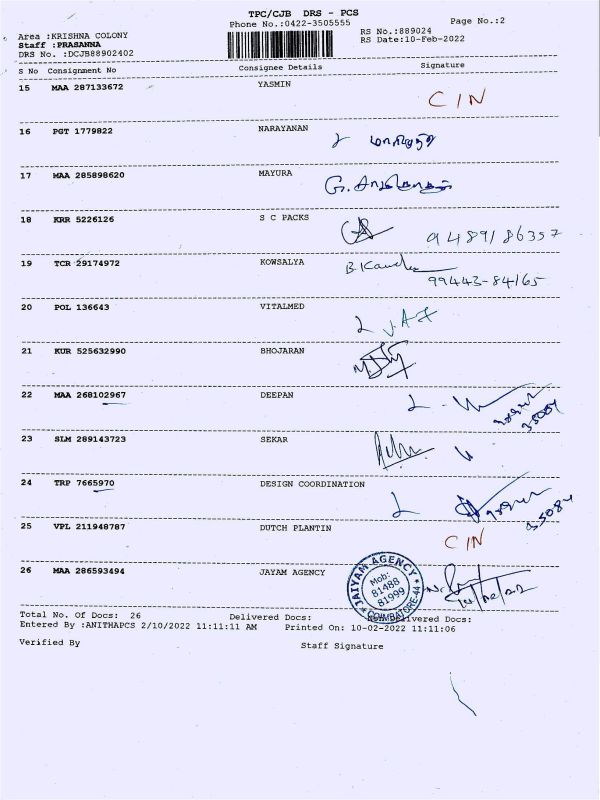 TPC/CJB DRS - PCS
Phone No.:0422-3505555 Page No.:2
Area :KRISHNA COLONY RS No.:889024
Staff :PRASANNA RS Date:10-Feb-2022
DRS No. :DCJB88902402
S No Consignment No Consignee Details Signature
15 MAA 287133672 YASMIN CIN
16 PGT 1779822 NARAYANAN
17 MAA 285898620 MAYURA
18 KRR 5226126 S C PACKS
94891 86357
19 TCR 29174972 KOWSALYA
99443-84165
20 POL 136643 VITALMED
21 KUR 525632990 BHOJARAN
22 MAA 268102967 DEEPAN
35084
23 SLM 289143723 SEKAR
24 TRP 7665970 DESIGN COORDINATION
35084
25 VPL 211948787 DUTCH PLANTIN CIN
26 MAA 286593494 JAYAM AGENCY
JAIYAM AGENCY
Mob:
81488
81999
COIMBATORE-44
Total No. Of Docs: 26 Delivered Docs: NonDelivered Docs:
Entered By :ANITHAPCS 2/10/2022 11:11:11 AM Printed On: 10-02-2022 11:11:06
Verified By Staff Signature